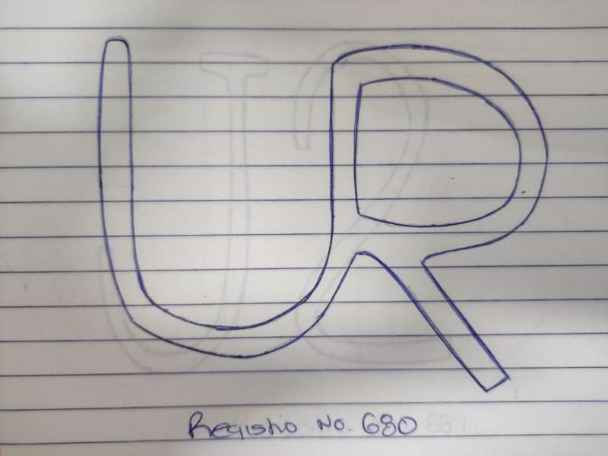 UR
Registro No. 680